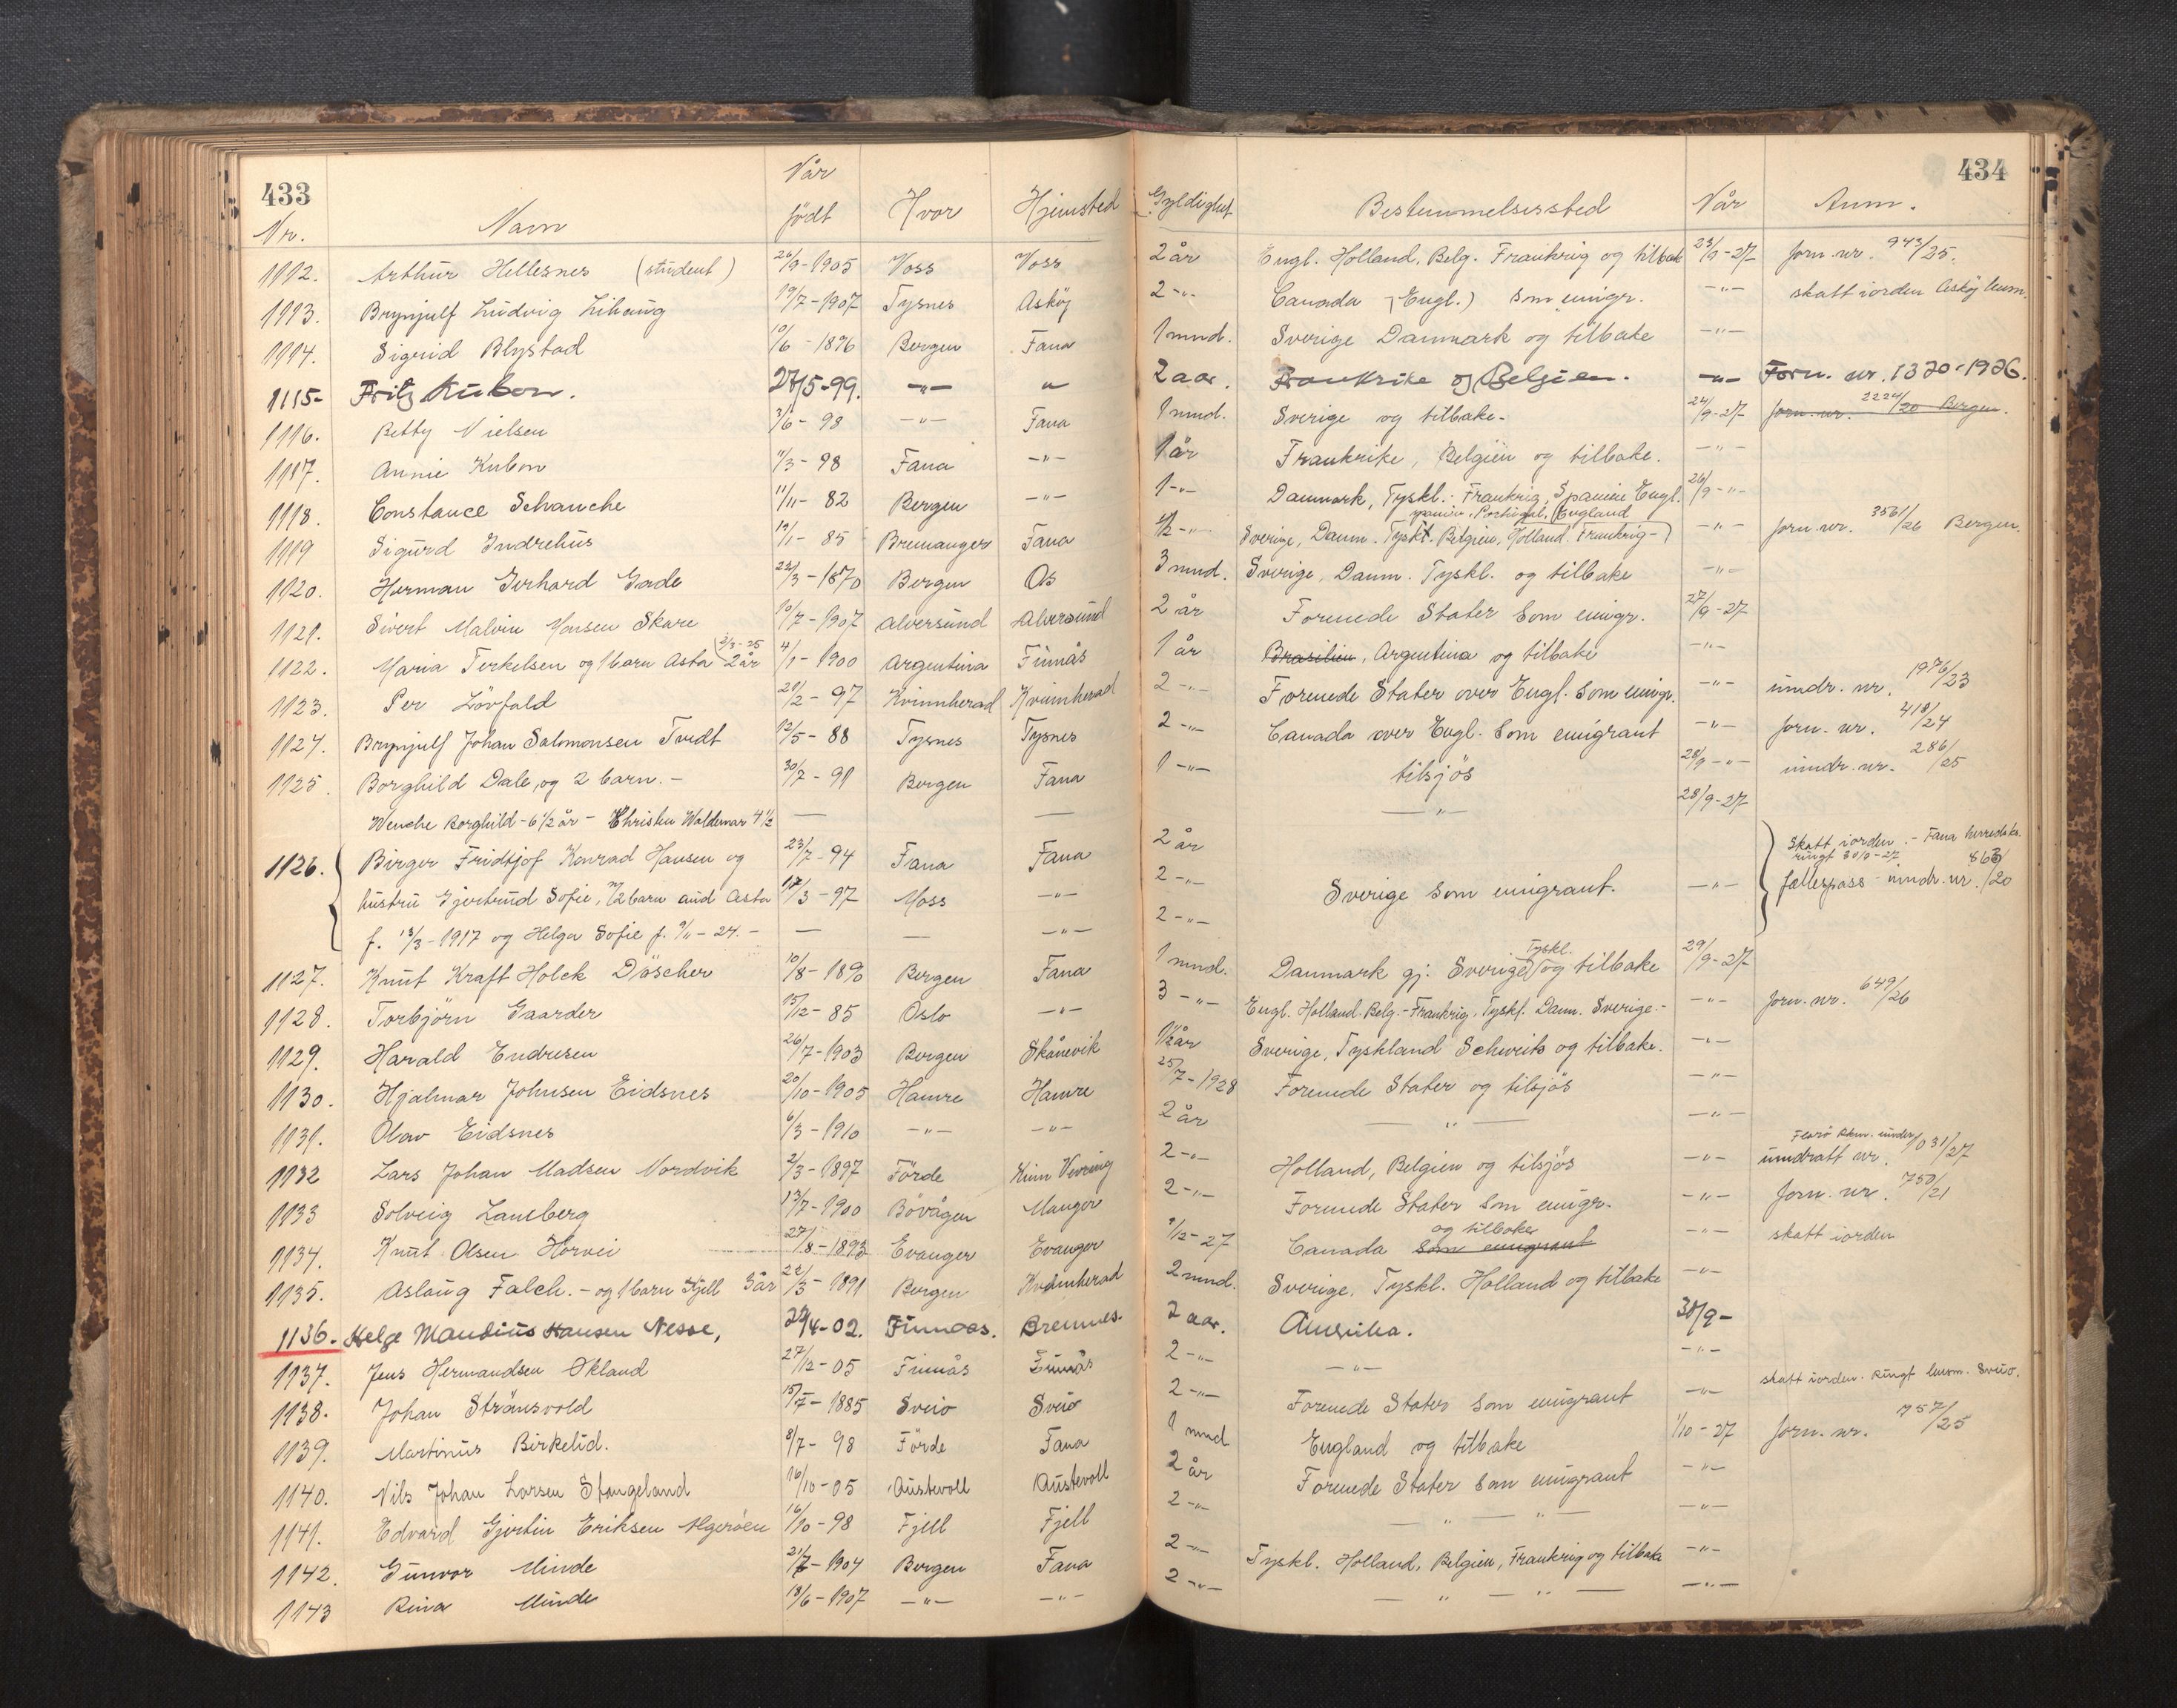 433
434
Nr. Navn Når født Hvor Hjemsted Gyldighet Bestemmelsessted Når Anm.
1112. Arthur Hellesnes (student) 26/9-1905 Voss Voss 2 år Engl. Holland, Belg. Frankrig og tilbake 23/9-27 forn. nr. 943/25.
1113. Brynjulf Ludvig Lihaug 19/7-1907 Tysnes Askøy 2 -"- Canada (Engl.) som emigr. -"- skatt iorden Askøy
1114. Sigrid Blystad 10/6-1896 Bergen Fana 1 mnd. Sverige Danmark og tilbake -"-
1115- Fritz Kubon. 27/5-99. -"- " 2 aar. Frankrike og Belgien. -"- Forn. nr. 1320-1926.
1116. Betty Nielsen 3/6-98 -"- Fana 1 mnd. Sverige og tilbake- 24/9-27 forn. nr. 2224/20 Bergen.
1117. Annie Kubon 11/3-98 Fana -"- 1 år Frankrike, Belgien og tilbake. -"-
1118. Constance Schanche 11/11-82 Bergen -"- 1 -"- Danmark, Tyskl. Frankrig, Spanien Engl. 26/9-"-
Spanien, Portugal, England
1119 Sigurd Indrehus 19/1-85 Bremanger Fana 1/2 -"- Sverige, Danm. Tyskl. Belgien, Holland Frankrig- -"- forn. nr. 3561/26 Bergen.
1120. Herman Gerhard Gade 22/3-1870 Bergen Os 3 mnd. Sverige, Danm. Tyskl. og tilbake -"-
1121. Sivert Malvin Monsen Skare 10/7-1907 Alversund Alversund 2 år Forenede Stater som emigr. 27/9-27
2/3-25
1122. Maria Terkelsen og 1 barn Asta 2 år 4/1-1900 Argentina Finnås 1 år Brasilien, Argentina og tilbake -"-
1123. Per Lövfald 21/2-97 Kvinnherad Kvinnherad 2 -"- Forenede Stater over Engl. som emigr. -"- inndr. nr. 1976/23
1124. Brynjulf Johan Salomonsen Tvedt 12/5-88 Tysnes Tysnes 2 -"- Canada over Engl. som emigrant -"- forn. nr. 418/24
1125. Borghild Dale, og 2 barn. - 30/7-91 Bergen Fana 1 -"- tilsjøs 28/9-"- inndr. nr. 286/25
Wenche Borghild - 6 1/2 år - Christen Waldemar 4 1/2 — — —"— 28/9-27
1126. Birger Fridtjof Konrad Hansen og 23/7-94 Fana Fana 2 år Skatt iorden. - Fana herredsks.
ringt 30/9-27
hustru Gjertrud Sofie, m/2 barn Aud Asta 17/3-97 Moss -"- 2 -"- Sverige som emigrant. -"- fellespass - inndr. nr. 863/20
f. 13/3-1917 og Helga Sofie f. 9/11-24. - — — -"- 2 -"-
Tyskl.
1127. Knut Kraft Holck Döscher 10/8-1890 Bergen Fana 1 mnd. Danmark gj. Sverige og tilbake 29/9-27
1128. Torbjörn Gaarder 15/12-85 Oslo -"- 3 -"- Engl. Holland Belg.- Frankrig, Tyskl. Danm. Sverige.- -"- forn. nr. 649/26
1129. Harald Endresen 26/7-1903 Bergen Skånevik 1/2 år Sverige, Tyskland Schweits og tilbake. -"-
1130. Hjalmar Johnsen Eidsnes 20/10-1905 Hamre Hamre 25/7-1928 Forenede Stater og tilsjøs -"-
1131. Olav Eidsnes 6/3-1910 -"- -"- 2 år —"— -"-
Florö
1132 Lars Johan Madsen Nordvik 2/3-1897 Förde Kinn Vevring 2 -"- Holland, Belgien og tilsjøs -"- inndratt nr. 1031/27
1133 Solveig Landberg 13/7-1900 Bövågen Manger 2 -"- Forenede Stater som emigr. -"- forn. nr. 750/21
og tilbake
1134. Knut Olsen Horvei 27/8-1893 Evanger Evanger 9/12-27 Canada som emigrant -"- skatt iorden
1135. Aslaug Falch. - og 1 barn Kjell 3 år 22/3-1891 Bergen Kvinnherad 2 mnd. Sverige, Tyskl. Holland og tilbake -"-
1136. Helge Mandius Hansen Nesse, 22/4-02. Finnaas. Bremnes. 2 aar. Amerika. 30/9-
1137. Jens Hermandsen Økland 27/12-05 Finnås Finnås 2 -"- -"- -"-
1138. Johan Strånsvold 15/7-1885 Sveio Sveio 2 -"- Forenede Stater som emigrant -"- skatt iorden. Ringt lensm. Sveio.
1139. Martinus Birkelid. 8/7-98 Förde Fana 1 mnd England og tilbake 1/10-27 forn. nr. 757/25
1140. Nils Johan Larsen Stangeland 16/10-05 Austevoll Austevoll 2 år Forenede Stater som emigrant -"-
1141. Edvard Gjertin Eriksen Algeröen 16/10-98 Fjell Fjell 2 -"- —"— —"— -"-
1142. Gunvor Minde 21/7-1904 Bergen Fana 2 -"- Tyskl. Holland, Belgien, Frankrig og tilbake -"-
1143 Rina Minde 18/6-1907 -"- -"- 2 -"- —"— -"-